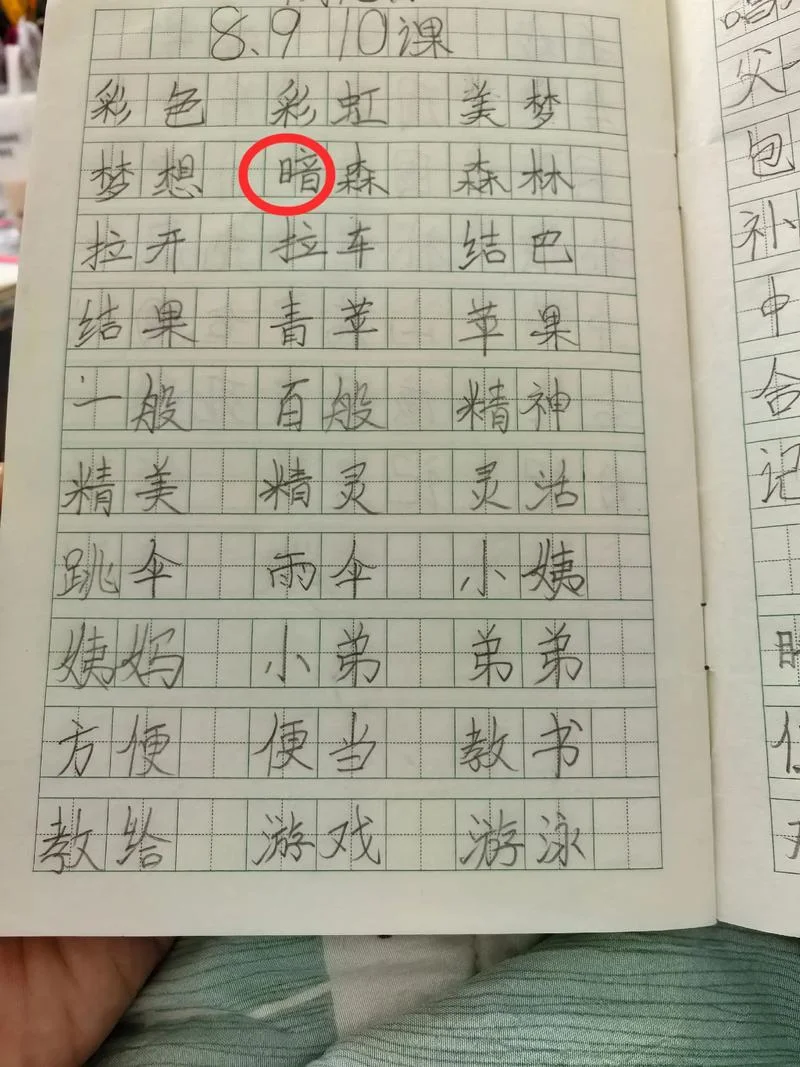 8、9 10课
彩色 彩虹 美梦
梦想 暗森 森林
拉开 拉车 结巴
结果 青苹 苹果
一般 百般 精神
精美 精灵 灵活
跳伞 雨伞 小姨
姨妈 小弟 弟弟
方便 便当 教书
教给 游戏 游泳
唱
父
包
补
中
合
记